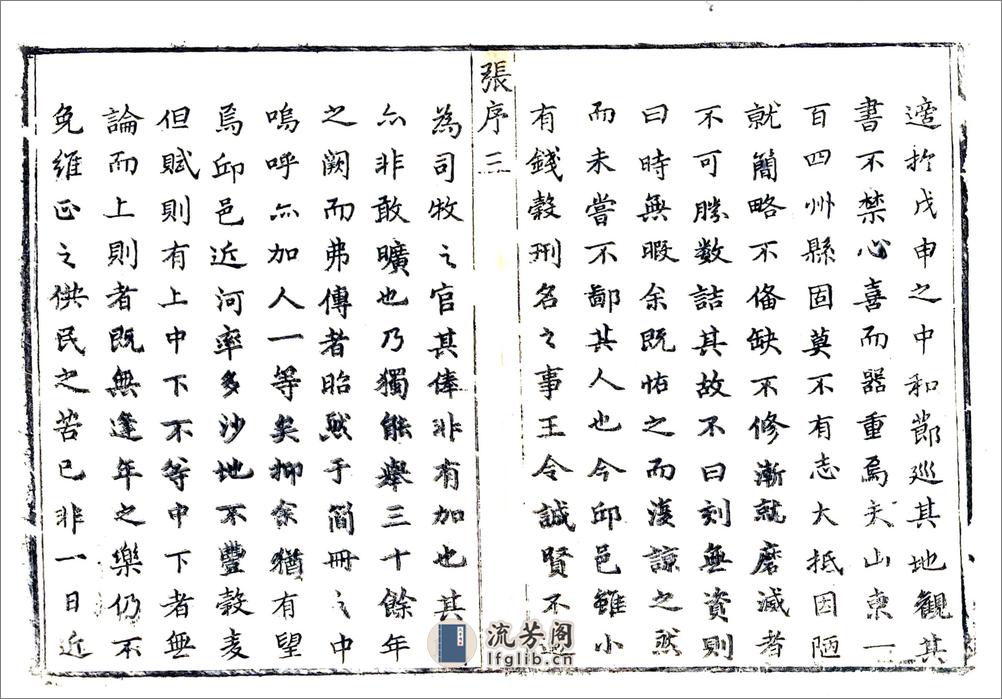 適扵戊申之中和節巡其地觀其
書不禁心喜而器重焉夫山東一
百四州縣固莫不有志大抵因陋
就簡略不俻缺不修漸就磨滅者
不可勝数詰其故不曰刻無資則
曰時無暇余既怙之而復諒之然
而未嘗不鄙其人也今邱邑雖小
有錢穀刑名之事王令誠賢不
張序 三
為司牧之官其俸非有加也其
亦非敢曠也乃獨能舉三十餘年
之闕而弗傳者昭然于簡冊之中
嗚呼亦加人一等矣抑余猶有望
焉邱邑近河率多沙地不豐穀麦
但賦則有上中下不等中下者無
論而上則者既無逢年之樂仍不
免維正之供民之苦已非一日近
流芳阁
lfglib.cn